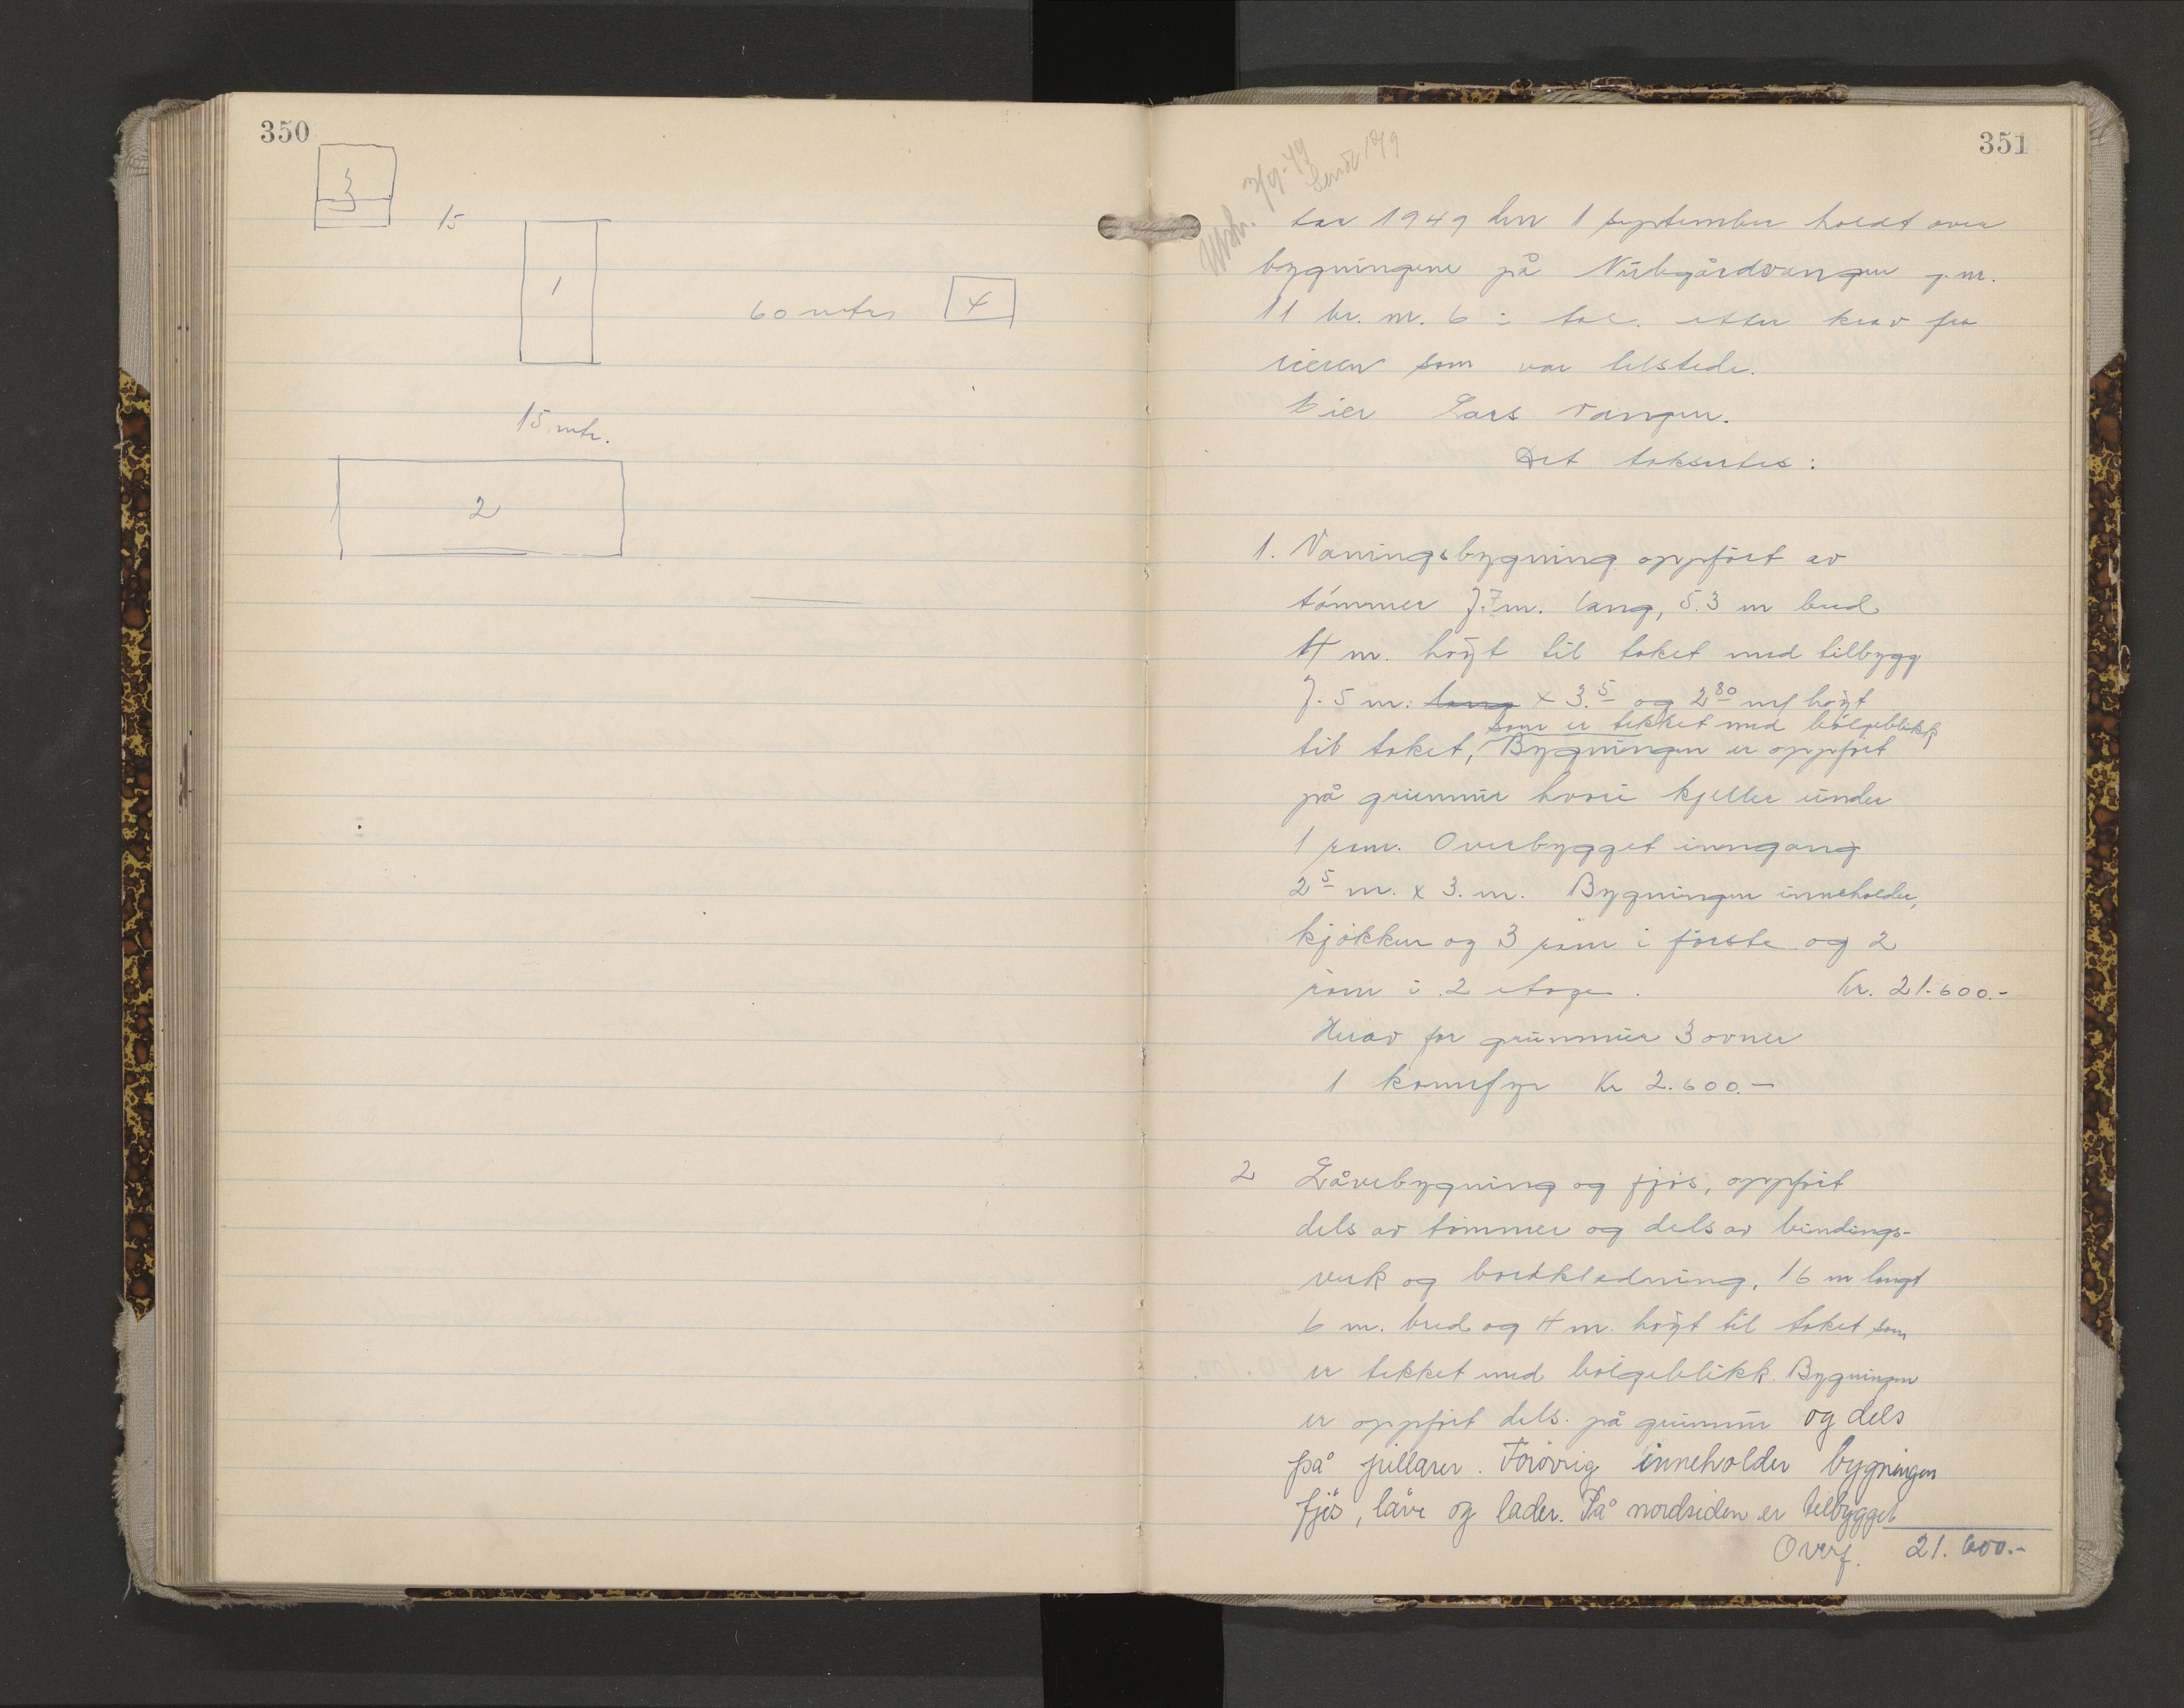 350
3
15
1
60 mtr
4
15 mtr.
2
351
Utskr. 3/9-49
Sendt 10/9
Aar 1949 den 1 september holdt over
bygningene på Nubgårdvangen g. nr.
11 br. nr. 6 i etter krav fra
eieren som var tilstede.
Eier Lars Vangen.
Det taksertes:
1. Vaningsbygning oppført av
tømmer 7.7 m. lang, 5.3 m bred
4 m. høyt til taket med tilbygg
7.5 m: lang x 3.5 og 2.80 m høyt
som er tekket med bølgeblikk,
til taket, Bygningen er oppført
på grunnmur hvori kjeller under
1 rum. Overbygget inngang
2.5 m. x 3. m. Bygningen inneholder,
kjøkken og 3 rum i første og 2
rom i 2 etage. Kr. 21.600.-
Herav for grunnmur 3 ovner
1 komfyr Kr 2.600.-
2 Låvebygning og fjøs, oppført
dels av tømmer og dels av bindings-
verk og bordkledning, 16 m langt
6 m. bred og 4 m. høyt til taket som
er tekket med bølgeblikk. Bygningen
er oppført dels. på grunnmur og dels
på pillarer. Forøvrig inneholder bygningen
fjøs, låve og lader. På nordsiden er tilbygget
Overf. 21.600.-